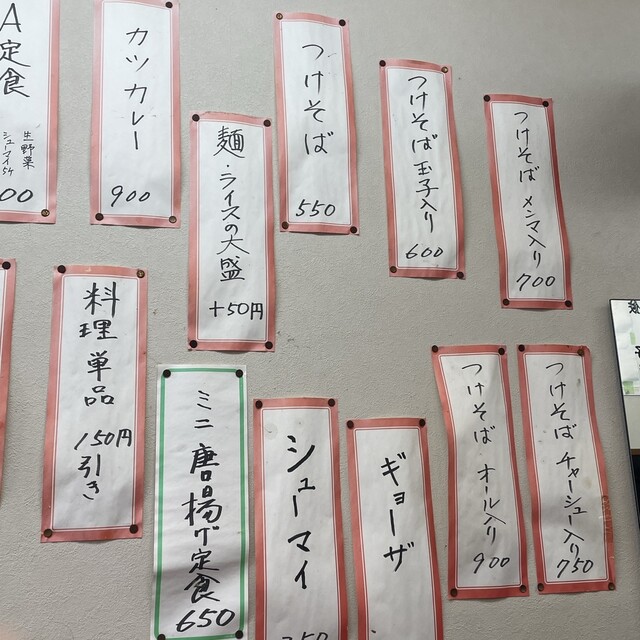 A定食
生野菜
シューマイ5ケ
00
カツカレー
900
麺・ライスの大盛
+50円
つけそば
550
つけそば 玉子入り
600
つけそば メンマ入り
700
料理 単品
150円引き
ミニ唐揚げ定食
650
シューマイ
ギョーザ
つけそば オール入り
900
つけそば チャーシュー入り
750